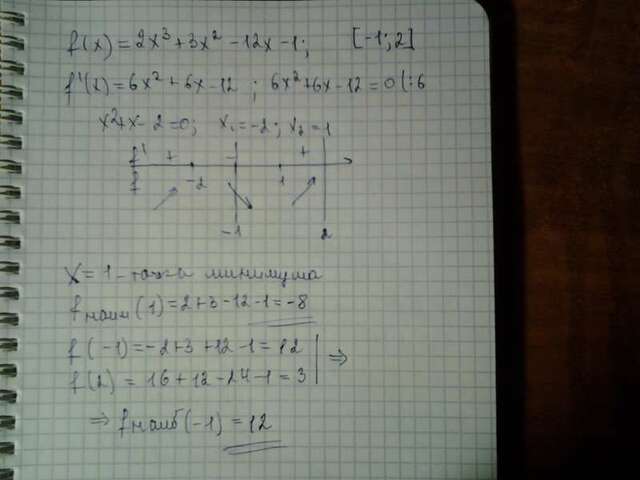 f(x)=2x³+3x²-12x-1; [-1;2]
f'(x)=6x²+6x-12; 6x²+6x-12=0 (:6
x²+x-2=0; x₁=-2; x₂=1
f' + - +
f -2 1
-1 2
x=1-точка минимума
fнаим(1)=2+3-12-1=-8
f(-1)=-2+3+12-1=12
f(2)=16+12-24-1=3 | ⇒
⇒ fнаиб(-1)=12